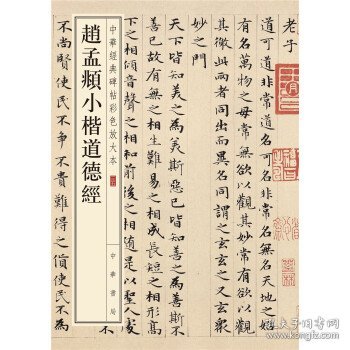 老子
道可道非常道名可名非常名無名天地之始
有名萬物之母常無欲以觀其妙常有欲以觀
其徼此兩者同出而異名同謂之玄玄之又玄眾
妙之門
天下皆知美之為美斯惡已皆知善之為善斯不
善已故有無之相生難易之相成長短之相形高
下之相傾音聲之相和前後之相隨是以聖人處
中華經典碑帖彩色放大本
趙孟頫小楷道德經
中華書局
不尚賢使民不爭不貴難得之貨使民不為
孔夫子旧书网